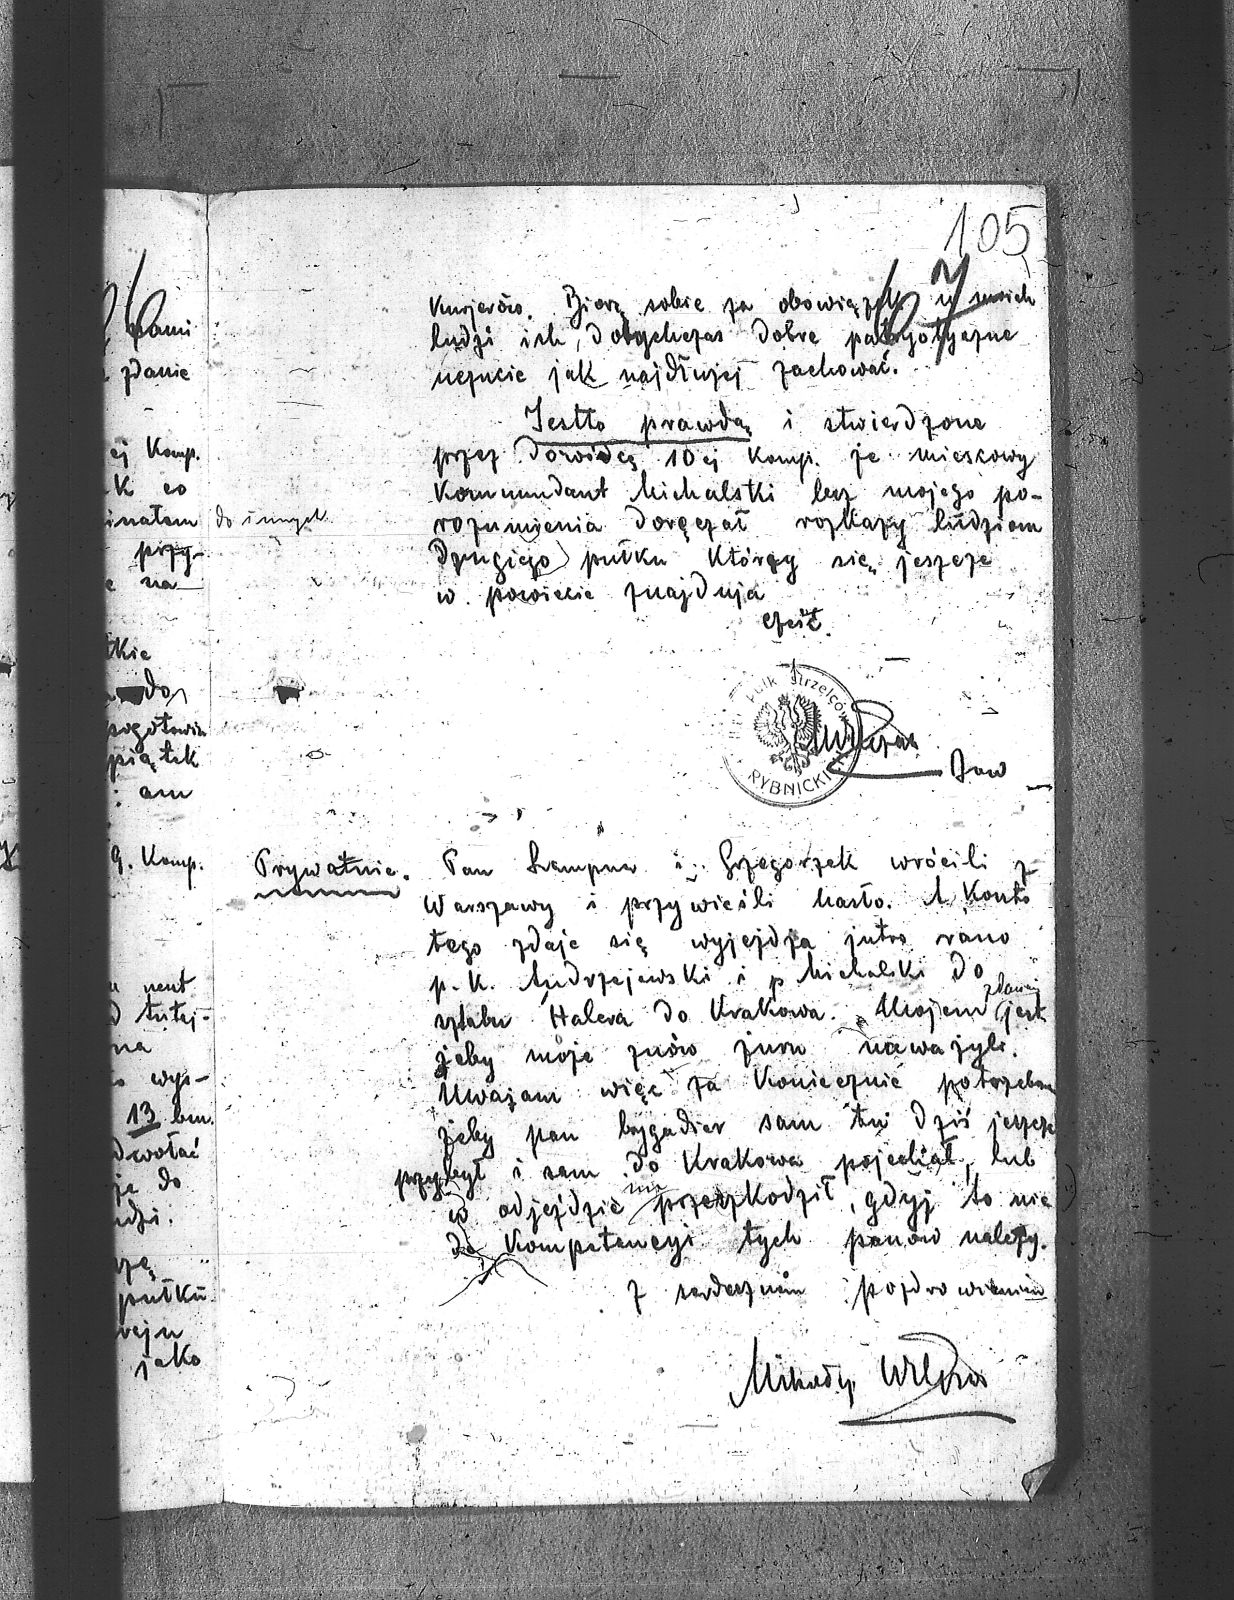 105
kurjerów. Biorę sobie za obowiązek u moich
ludzi ich, dotychczas dobre patryjotyczne
uczucie jak najdłużej zachować.
Jestto prawdą i stwierdzone
przez dowódcę 10ej Komp. że miescowy
Kommandant Michalski bez mojego po-
rozumienia doręczał rozkazy lüdziom
drugiego pułku którzy się jeszcze
w powiecie znajduja
Cześć.
do innych
Pułk Strzelców
RYBNICKI
Prywatnie.
Pan i Grzegorzek wrócili z
Warszawy i przywieźli hasło. A konto
tego zdaje się wyjeżdza jutro rano
p. K. Andrzejewski i p Michalski do
sztabu Halera do Krakowa. Mojem zdaniem jest
żeby moje znów
Uważam więc za koniecznie potrzebne
żeby pan brygadier sam tu dziś jeszcze
przybył i sam do Krakowa pojechał, lub
odjeździe im przeszkodził, gdyż to nie
do kompetencyi tych panów należy.
z serdecznem pozdrowieniem
ami
zdanie
ej Komp.
k co
przy-
na
tkie
do
piątek
am
9. Komp.
na
wys-
13 bm.
do
pułku
jako